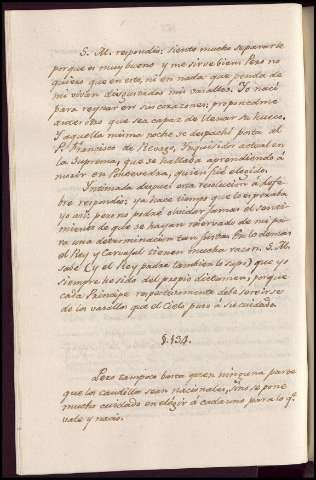 S. M. respondió: siento mucho separarle
porque es muy bueno y me sirve bien: Pero no
quiero que en este, ni en nada que penda de
mi vivan disgustados mis vasallos. Yo nací
para reynar en sus corazones: proponedme
qualquiera otro que sea capaz de llenar su hueco.
Y aquella misma noche se despachó posta al
P. Francisco de Ravago, Inquisidor actual en
la Suprema, que se hallaba aprendiendo á
morir en Pontevedra, quien fué elegido.
Intimada despues esta resolucion á Lefe-
bre respondió: ya hace tiempo que lo esperaba
yo asi; pero no podré olvidar jamas el senti-
miento de que se hayan reservado de mi pa-
ra una determinacion tan justa. Por lo demas,
el Rey y Carvajal tienen mucha razon. S. M.
sabe (y el Rey padre tambien lo supo) que yo
siempre he sido del propio dictamen, porque
cada Principe respectivamente debe servirse
de los vasallos que el Cielo puso á su cuidado.
§. 134.
Pero tampoco basta que en ninguna parte
que los caudillos sean nacionales, sino se pone
mucho cuidado en elegir á cada uno para lo q.e
vale y nació.